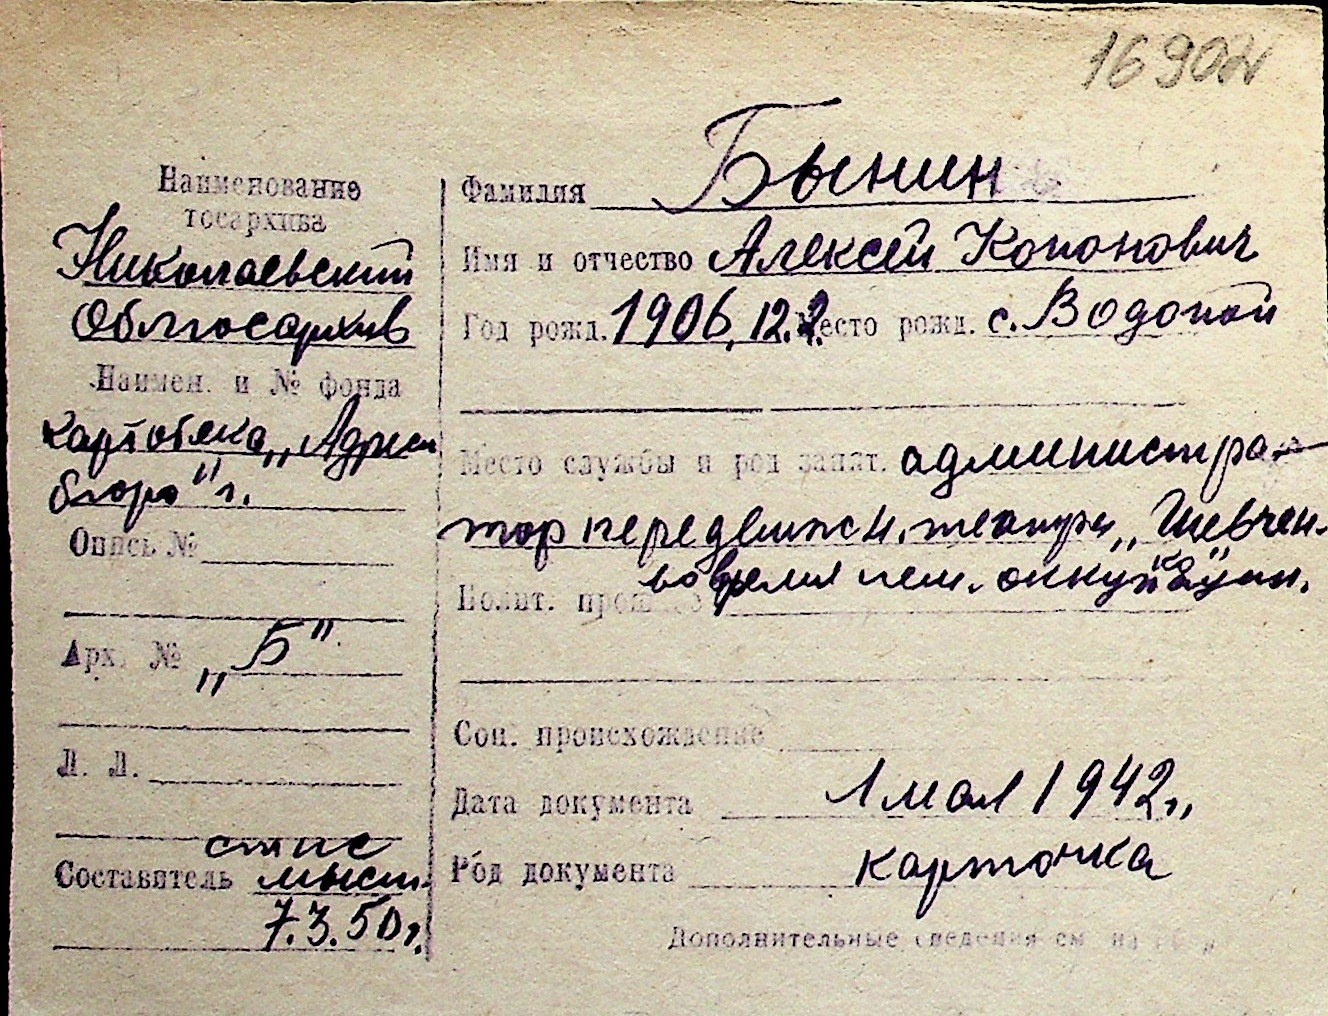 16902
Наименование
госархива
Николаевский
Облгосархив
Наимен. и № фонда
картотека „Адресн
бюро" г.
Опись №
Арх. № „Б"
Л. Л.
Составитель
мысл.
7.3.50г.
Фамилия Бынин
Имя и отчество Алексей Кононович
Год рожд. 1906, 12.2. Место рожд. с. Водопой
Место службы и род занят. администра-
тор передвижн. театра „Шевчен-
ко"
во время нем. оккупации.
Полит. прошлое
Соц. происхождение
Дата документа 1 мая 1942г.,
Род документа карточка
Дополнительные сведения см на об